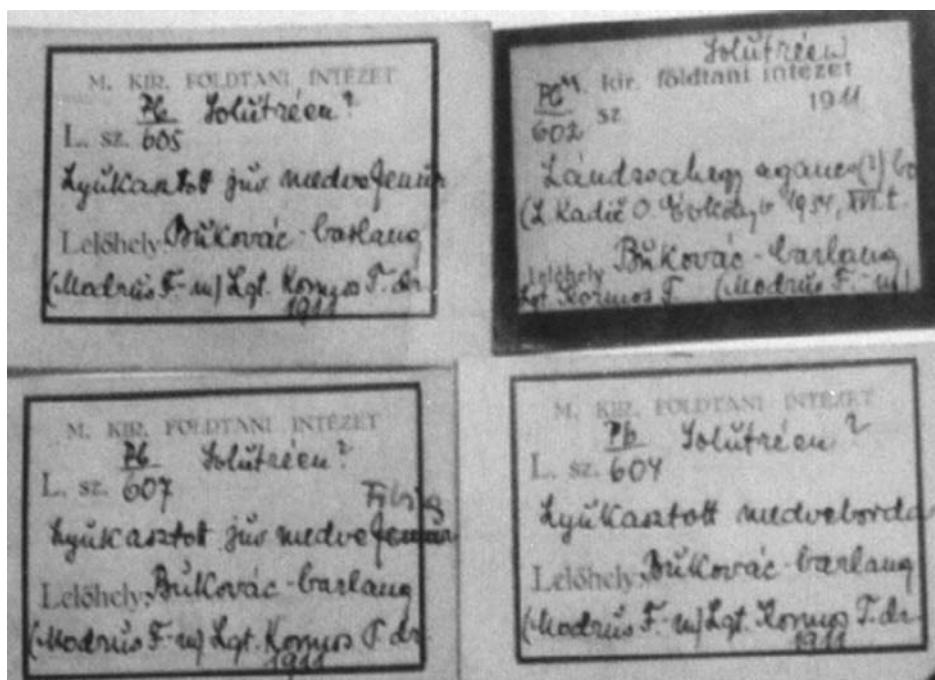 M. KIR. FÖLDTANI INTÉZET
Pb Solutréen?
L. sz. 605
Lyukasztott juv medvefemur
Lelőhely: Bukovác-barlang
(Modrus F.-m) Lgt. Kormos T. dr.
1911
Solutréen
M. kir. földtani intézet
Pb 1911
602 sz
Lándzsahegy agancs(?)
(L. Kadič O. 1934, XVI.t.
Bukovác-barlang
Lelőhely
Lgt. Kormos T. (Modrus F.-m)
M. KIR. FÖLDTANI INTÉZET
Pb Solutréen?
L. sz. 607
Lyukasztot juv medvefemur
Lelőhely: Bukovác-barlang
(Modrus F.-m) Lgt. Kormos T dr.
1911
M. KIR. FÖLDTANI INTÉZET
Pb Solutréen?
L. sz. 604
Lyukasztott medveborda
Lelőhely: Bukovác-barlang
(Modrus F.-m) Lgt. Kormos T. dr.
1911